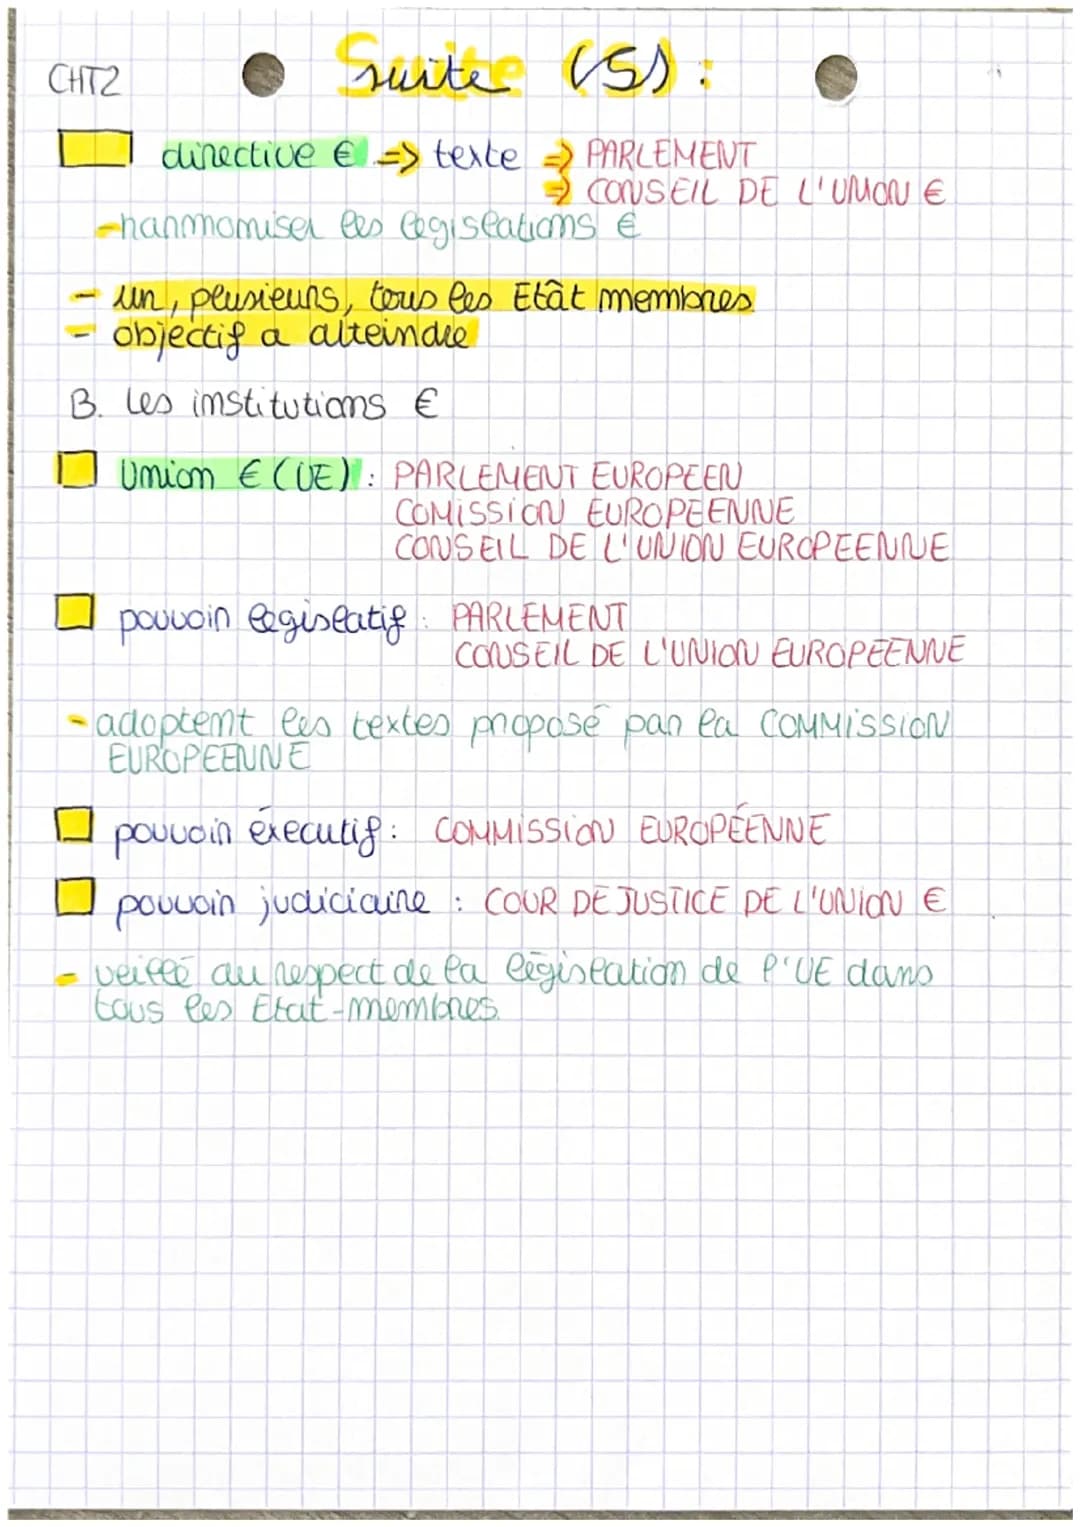 CHT2
Suite (5) :
directive € => texte => PARLEMENT
=> CONSEIL DE L'UNION €
- harmoniser les législations €
- un, plusieurs, tous les Etât membres
- objectif a atteindre
B. les institutions €
Union € (UE) : PARLEMENT EUROPEEN
COMISSION EUROPEENNE
CONSEIL DE L'UNION EUROPEENNE
pouvoir législatif : PARLEMENT
CONSEIL DE L'UNION EUROPEENNE
- adoptent les textes proposé par la COMMISSION
EUROPEENNE
pouvoir éxecutif : COMMISSION EUROPÉENNE
pouvoir judiciaire : COUR DE JUSTICE DE L'UNION €
- veillé au respect de la législation de l'UE dans
tous les Etat-membres.